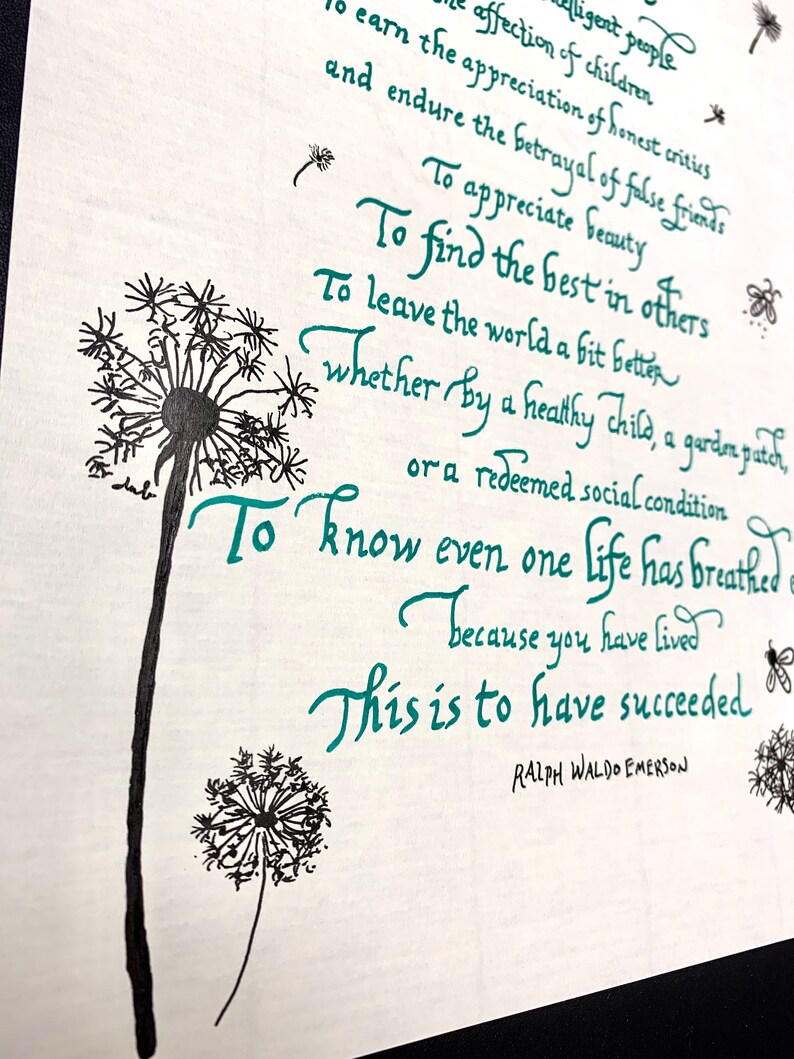 intelligent people
the affection of children
To earn the appreciation of honest critics
and endure the betrayal of false friends
To appreciate beauty
To find the best in others
To leave the world a bit better
whether by a healthy child, a garden patch,
or a redeemed social condition
To know even one life has breathed
because you have lived
This is to have succeeded
RALPH WALDO EMERSON